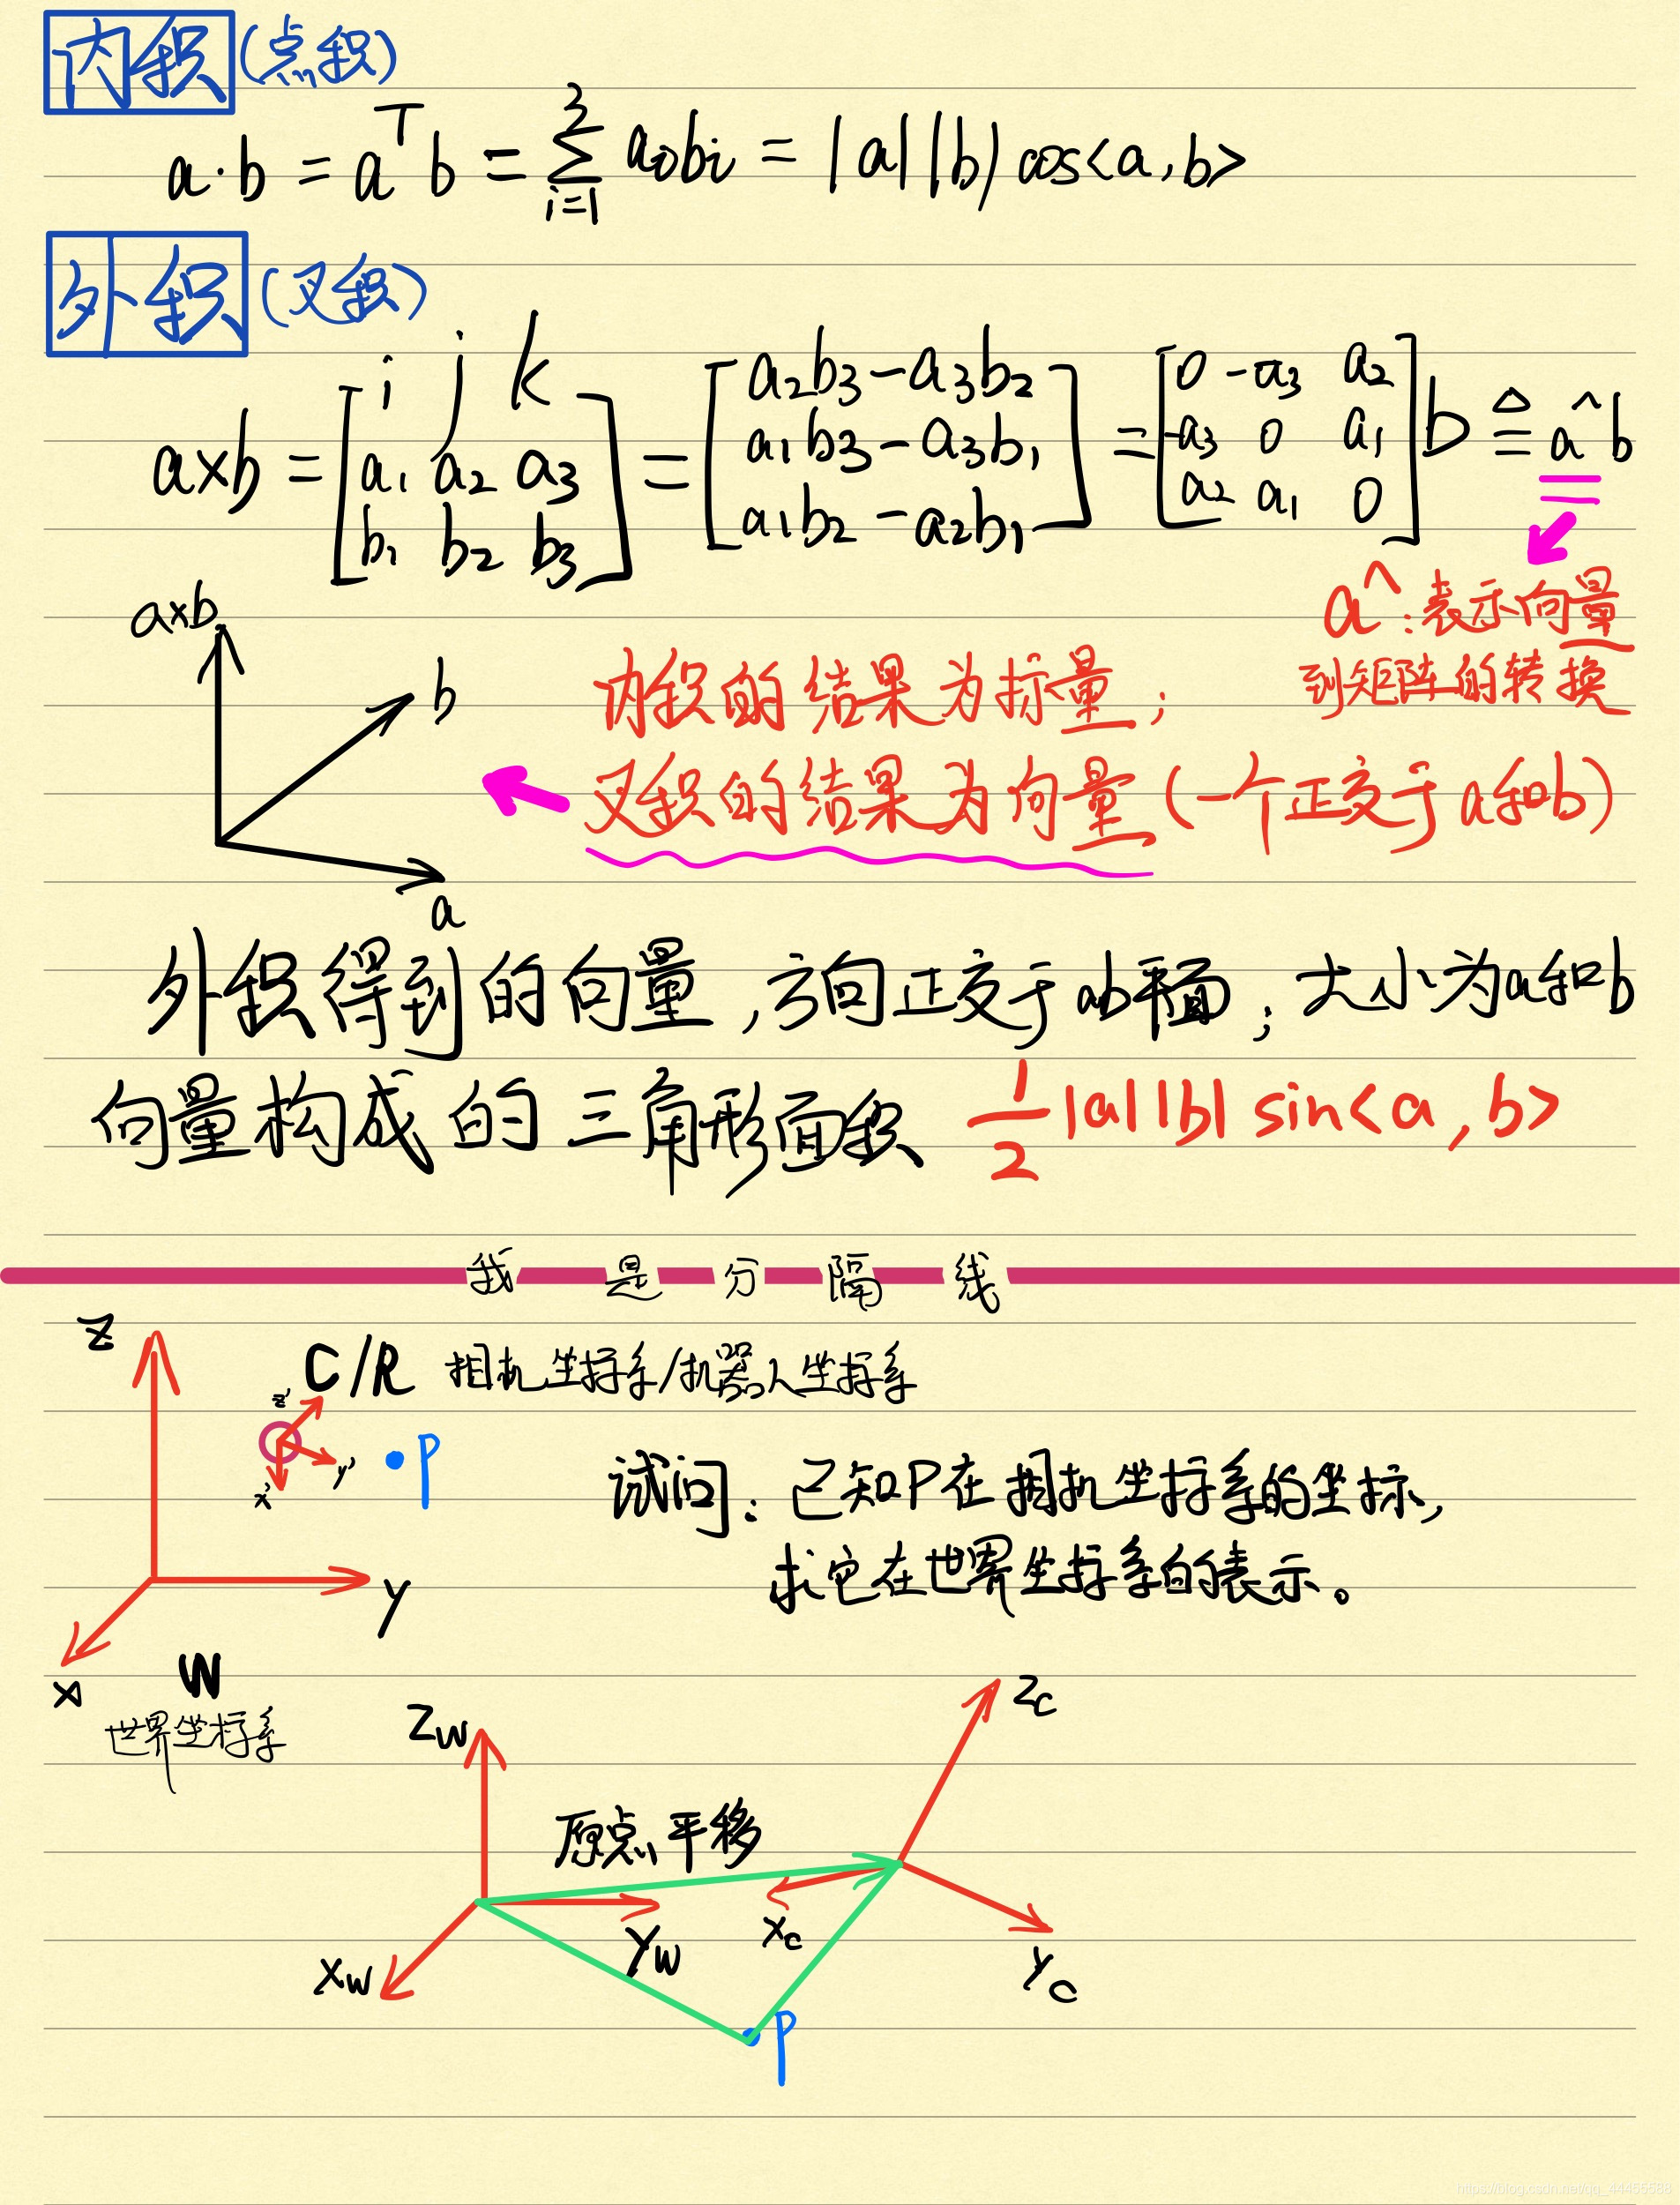 内积(点积)
a·b = aᵀb = ∑³ᵢ₌₁ aᵢbᵢ = |a||b|cos<a,b>
外积(叉积)
a×b = [i j k; a₁ a₂ a₃; b₁ b₂ b₃] = [a₂b₃-a₃b₂; a₁b₃-a₃b₁; a₁b₂-a₂b₁] = [0 -a₃ a₂; -a₃ 0 a₁; a₂ a₁ 0]b ≜ a^b
a^:表示向量
到矩阵的转换
a×b
b
a
内积的结果为标量;
叉积的结果为向量(一个正交于a和b)
外积得到的向量,方向正交于ab平面;大小为a和b
向量构成的三角形面积 1/2|a||b|sin<a,b>
我是分隔线
z
C/R 相机坐标系/机器人坐标系
z'
y'
x'
P
y
x
W
世界坐标系
试问:已知P在相机坐标系的坐标,
求它在世界坐标系的表示。
Zw
原点平移
Zc
Xw
Yw
Xc
Yc
P